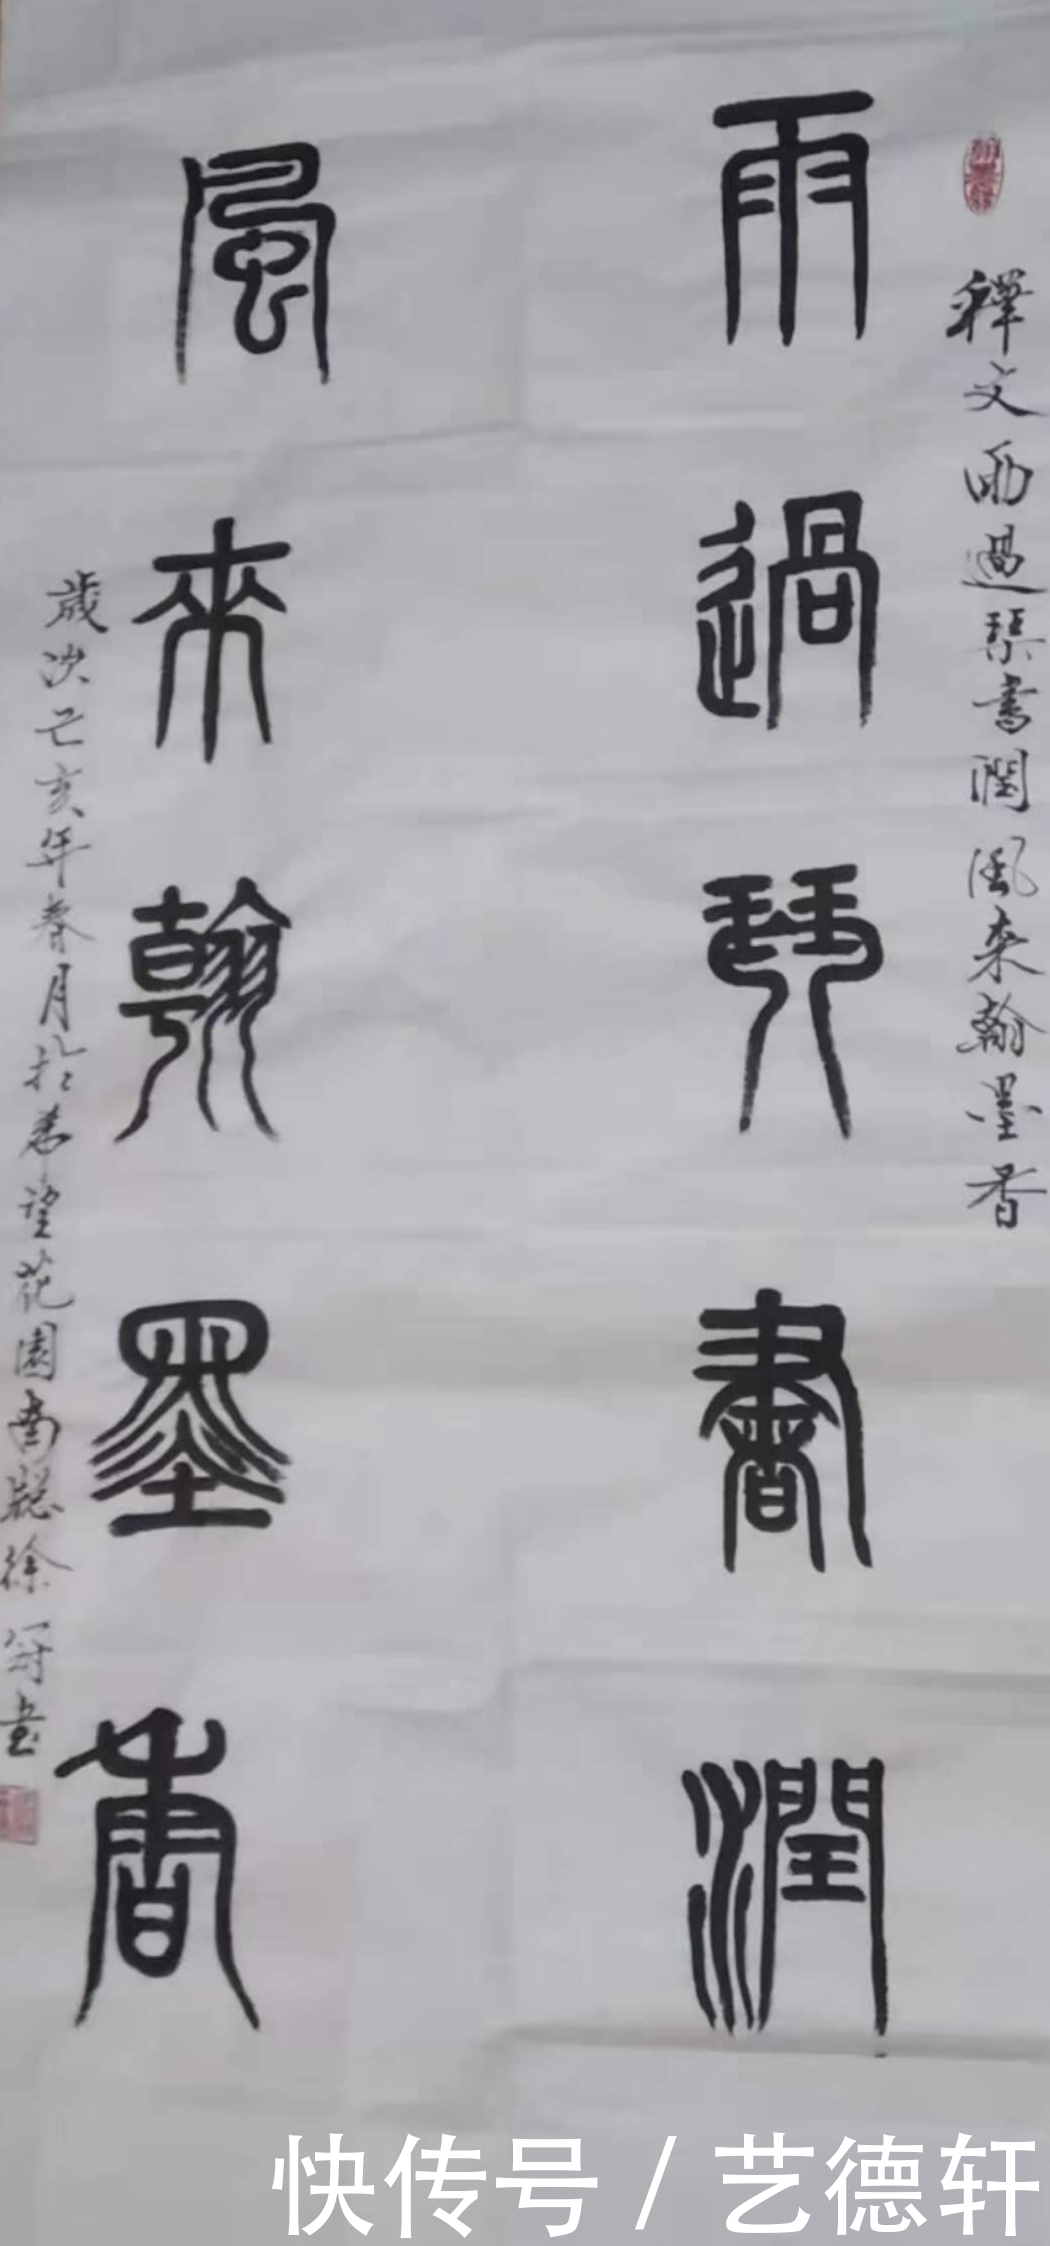 釋文雨過琴書潤風来翰墨香
雨過琴書潤
風來翰墨香
歲次己亥年春月於希望花園南窗徐書
快传号/艺德轩